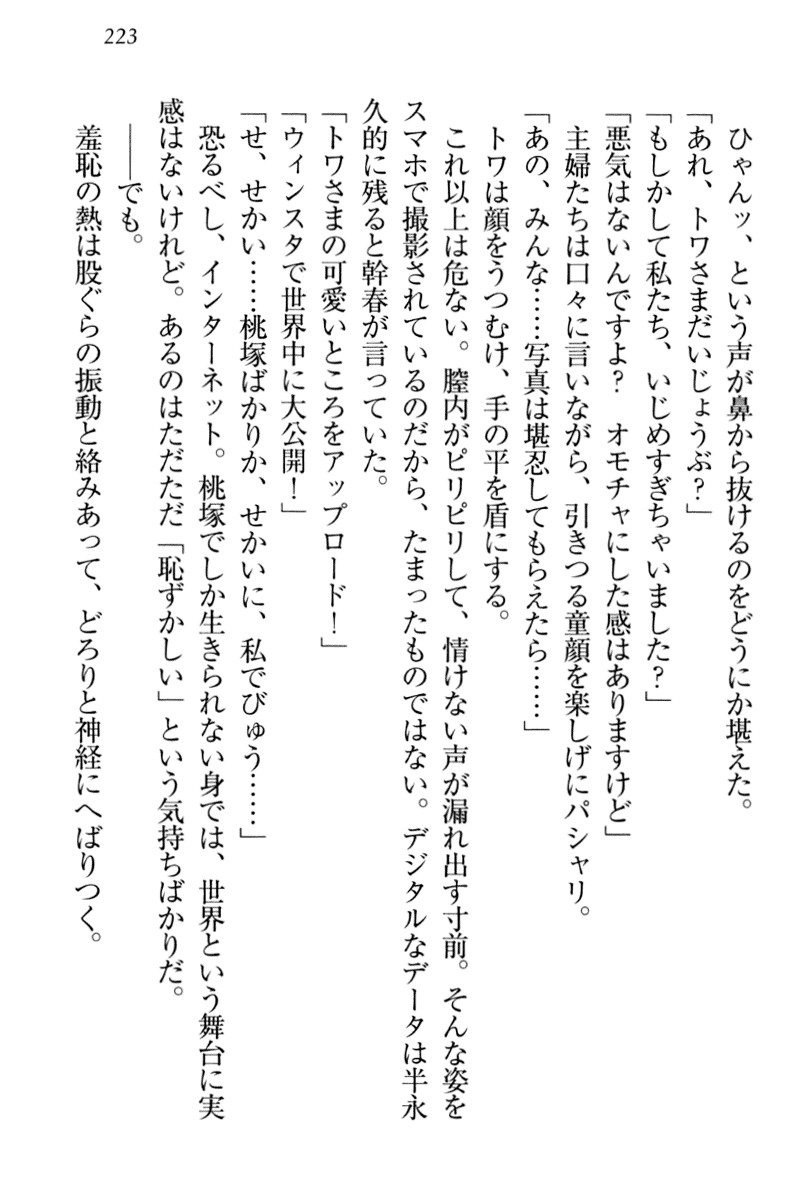 223
ひゃんッ、という声が鼻から抜けるのをどうにか堪えた。
「あれ、トワさまだいじょうぶ?」
「もしかして私たち、いじめすぎちゃいました?」
「悪気はないんですよ? オモチャにした感はありますけど」
主婦たちは口々に言いながら、引きつる童顔を楽しげにパシャリ。
「あの、みんな……写真は堪忍してもらえたら……」
トワは顔をうつむけ、手の平を盾にする。
これ以上は危ない。膣内がピリピリして、情けない声が漏れ出す寸前。そんな姿を
スマホで撮影されているのだから、たまったものではない。デジタルなデータは半永
久的に残ると幹春が言っていた。
「トワさまの可愛いところをアップロード!」
「ウィンスタで世界中に大公開!」
「せ、せかい……桃塚ばかりか、せかいに、私でびゅう……」
恐るべし、インターネット。桃塚でしか生きられない身では、世界という舞台に実
感はないけれど。あるのはただただ「恥ずかしい」という気持ちばかりだ。
――でも。
羞恥の熱は股ぐらの振動と絡みあって、どろりと神経にへばりつく。